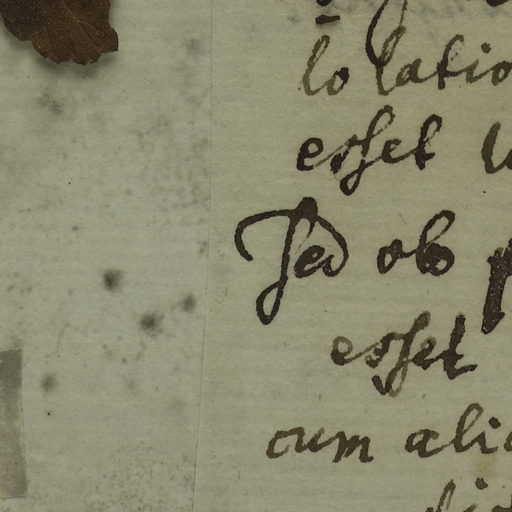 solatio
esset
sed ob
esset
cum ali